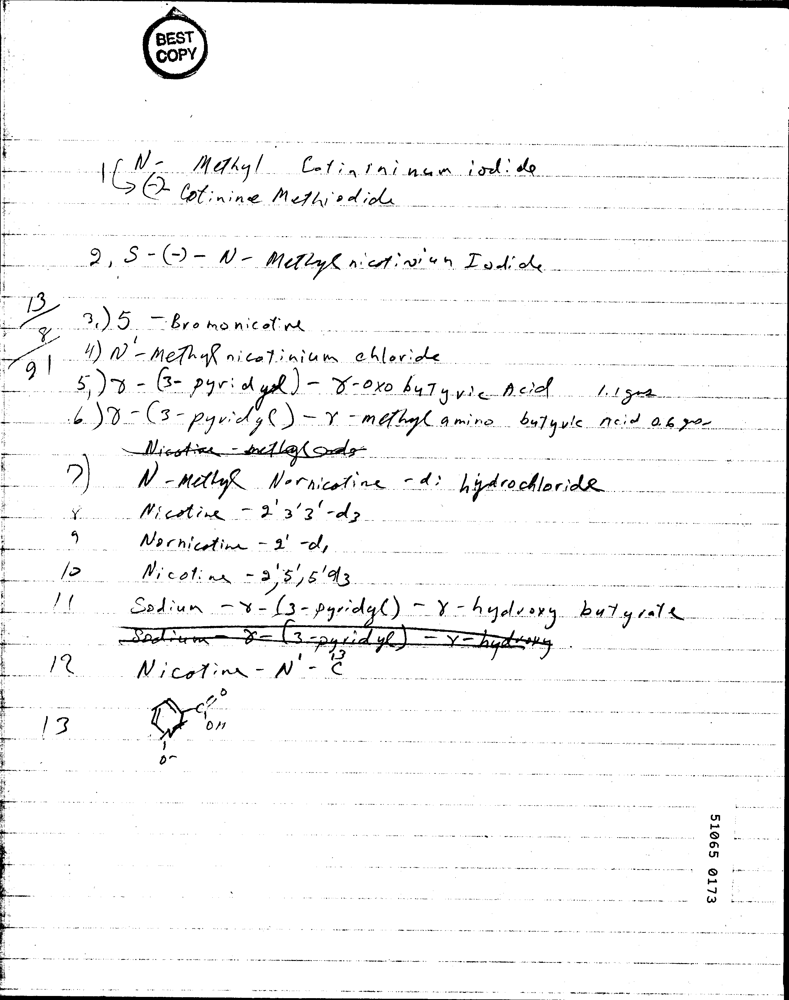 BEST
COPY
1( N- Methyl Cotininium iodide
↳ (-)- Cotinine Methiodide
2, S-(-)-N- Methyl nicotinium Iodide
13/8/91
3.) 5 - Bromonicotine
4) N'-Methyl nicotinium chloride
5,) γ-(3-pyridyl)-γ-oxo butyric Acid 1.1 gms
6.) γ-(3-pyridyl)-γ-methyl amino butyric Acid 0.6 gms
7) N-Methyl Nornicotine - di hydrochloride
8 Nicotine - 2'3'3'-d3
9 Nornicotine - 2'-d,
10 Nicotine - 2',5',5'd3
11 Sodium - γ-(3-pyridyl)-γ-hydroxy butyrate
Sodium - γ-(3-pyridyl)-γ-hydroxy
12 Nicotine - N'-13C
13
C O
OH
N
O-
51065 0173